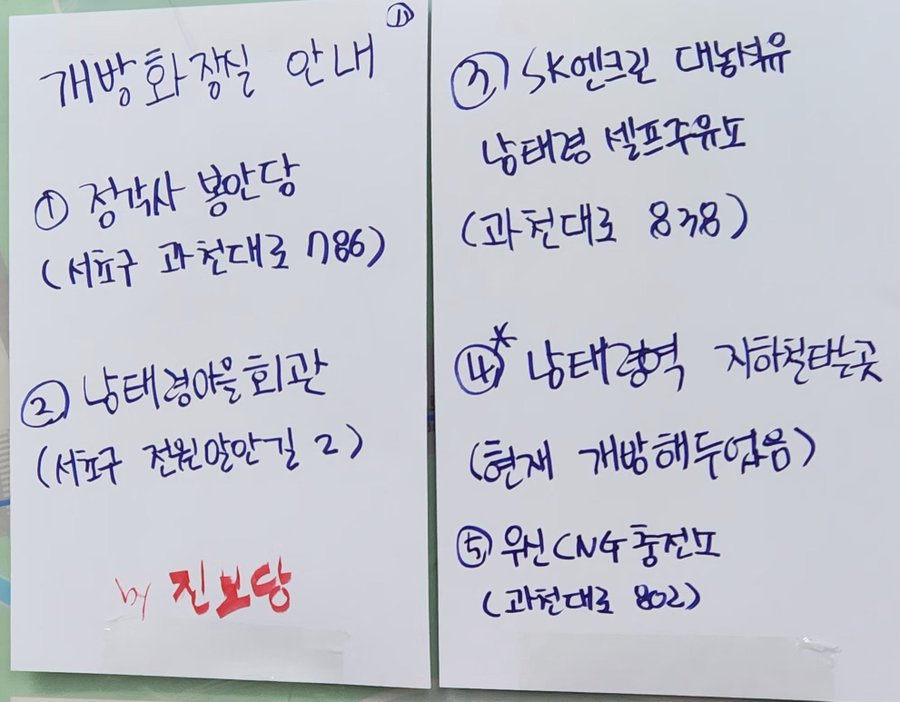 개방화장실 안내
① 정각사 봉안당
(서초구 과천대로 786)
② 남태령마을회관
(서초구 전원말안길 2)
by 진보당
③ SK엔크린 대농석유
남태령 셀프주유소
(과천대로 838)
④* 남태령역 지하철타는곳
(현재 개방해두었음)
⑤ 우신CNG충전소
(과천대로 802)